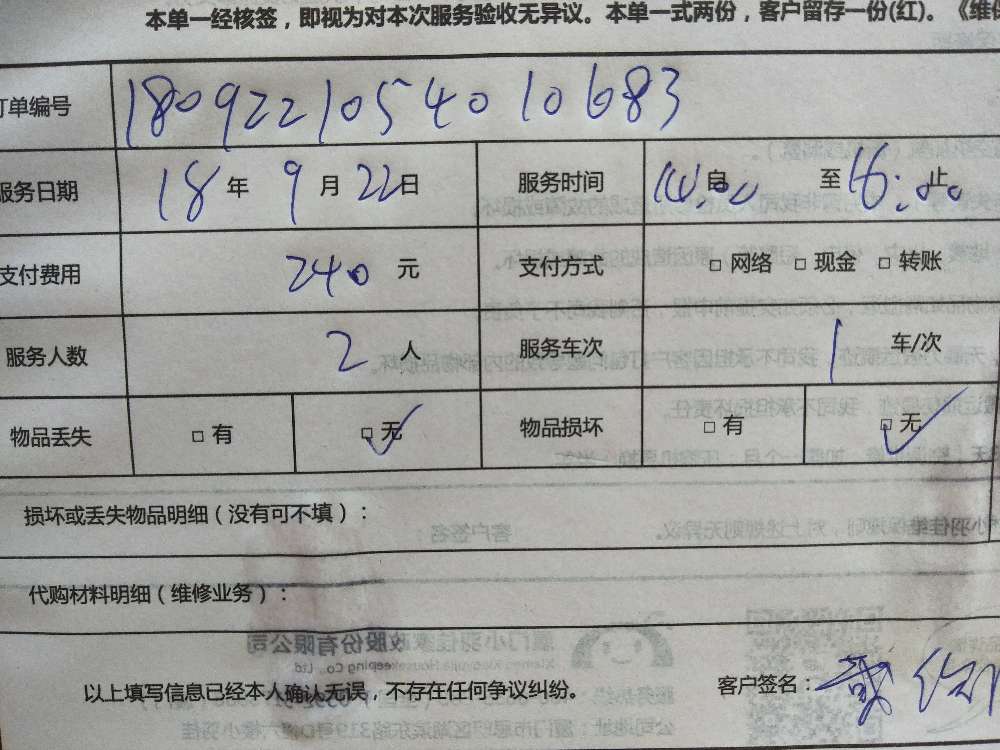 本单一经核签，即视为对本次服务验收无异议。本单一式两份，客户留存一份(红)。《维
订单编号 180922105401 0683
服务日期 18年 9月 22日 服务时间 14:00 自 至 16:00 止
支付费用 240 元 支付方式 □ 网络 □ 现金 □ 转账
服务人数 2 人 服务车次 1 车/次
物品丢失 □ 有 □ 无 物品损坏 □ 有 □ 无
损坏或丢失物品明细（没有可不填）：
代购材料明细（维修业务）：
以上填写信息已经本人确认无误，不存在任何争议纠纷。 客户签名：